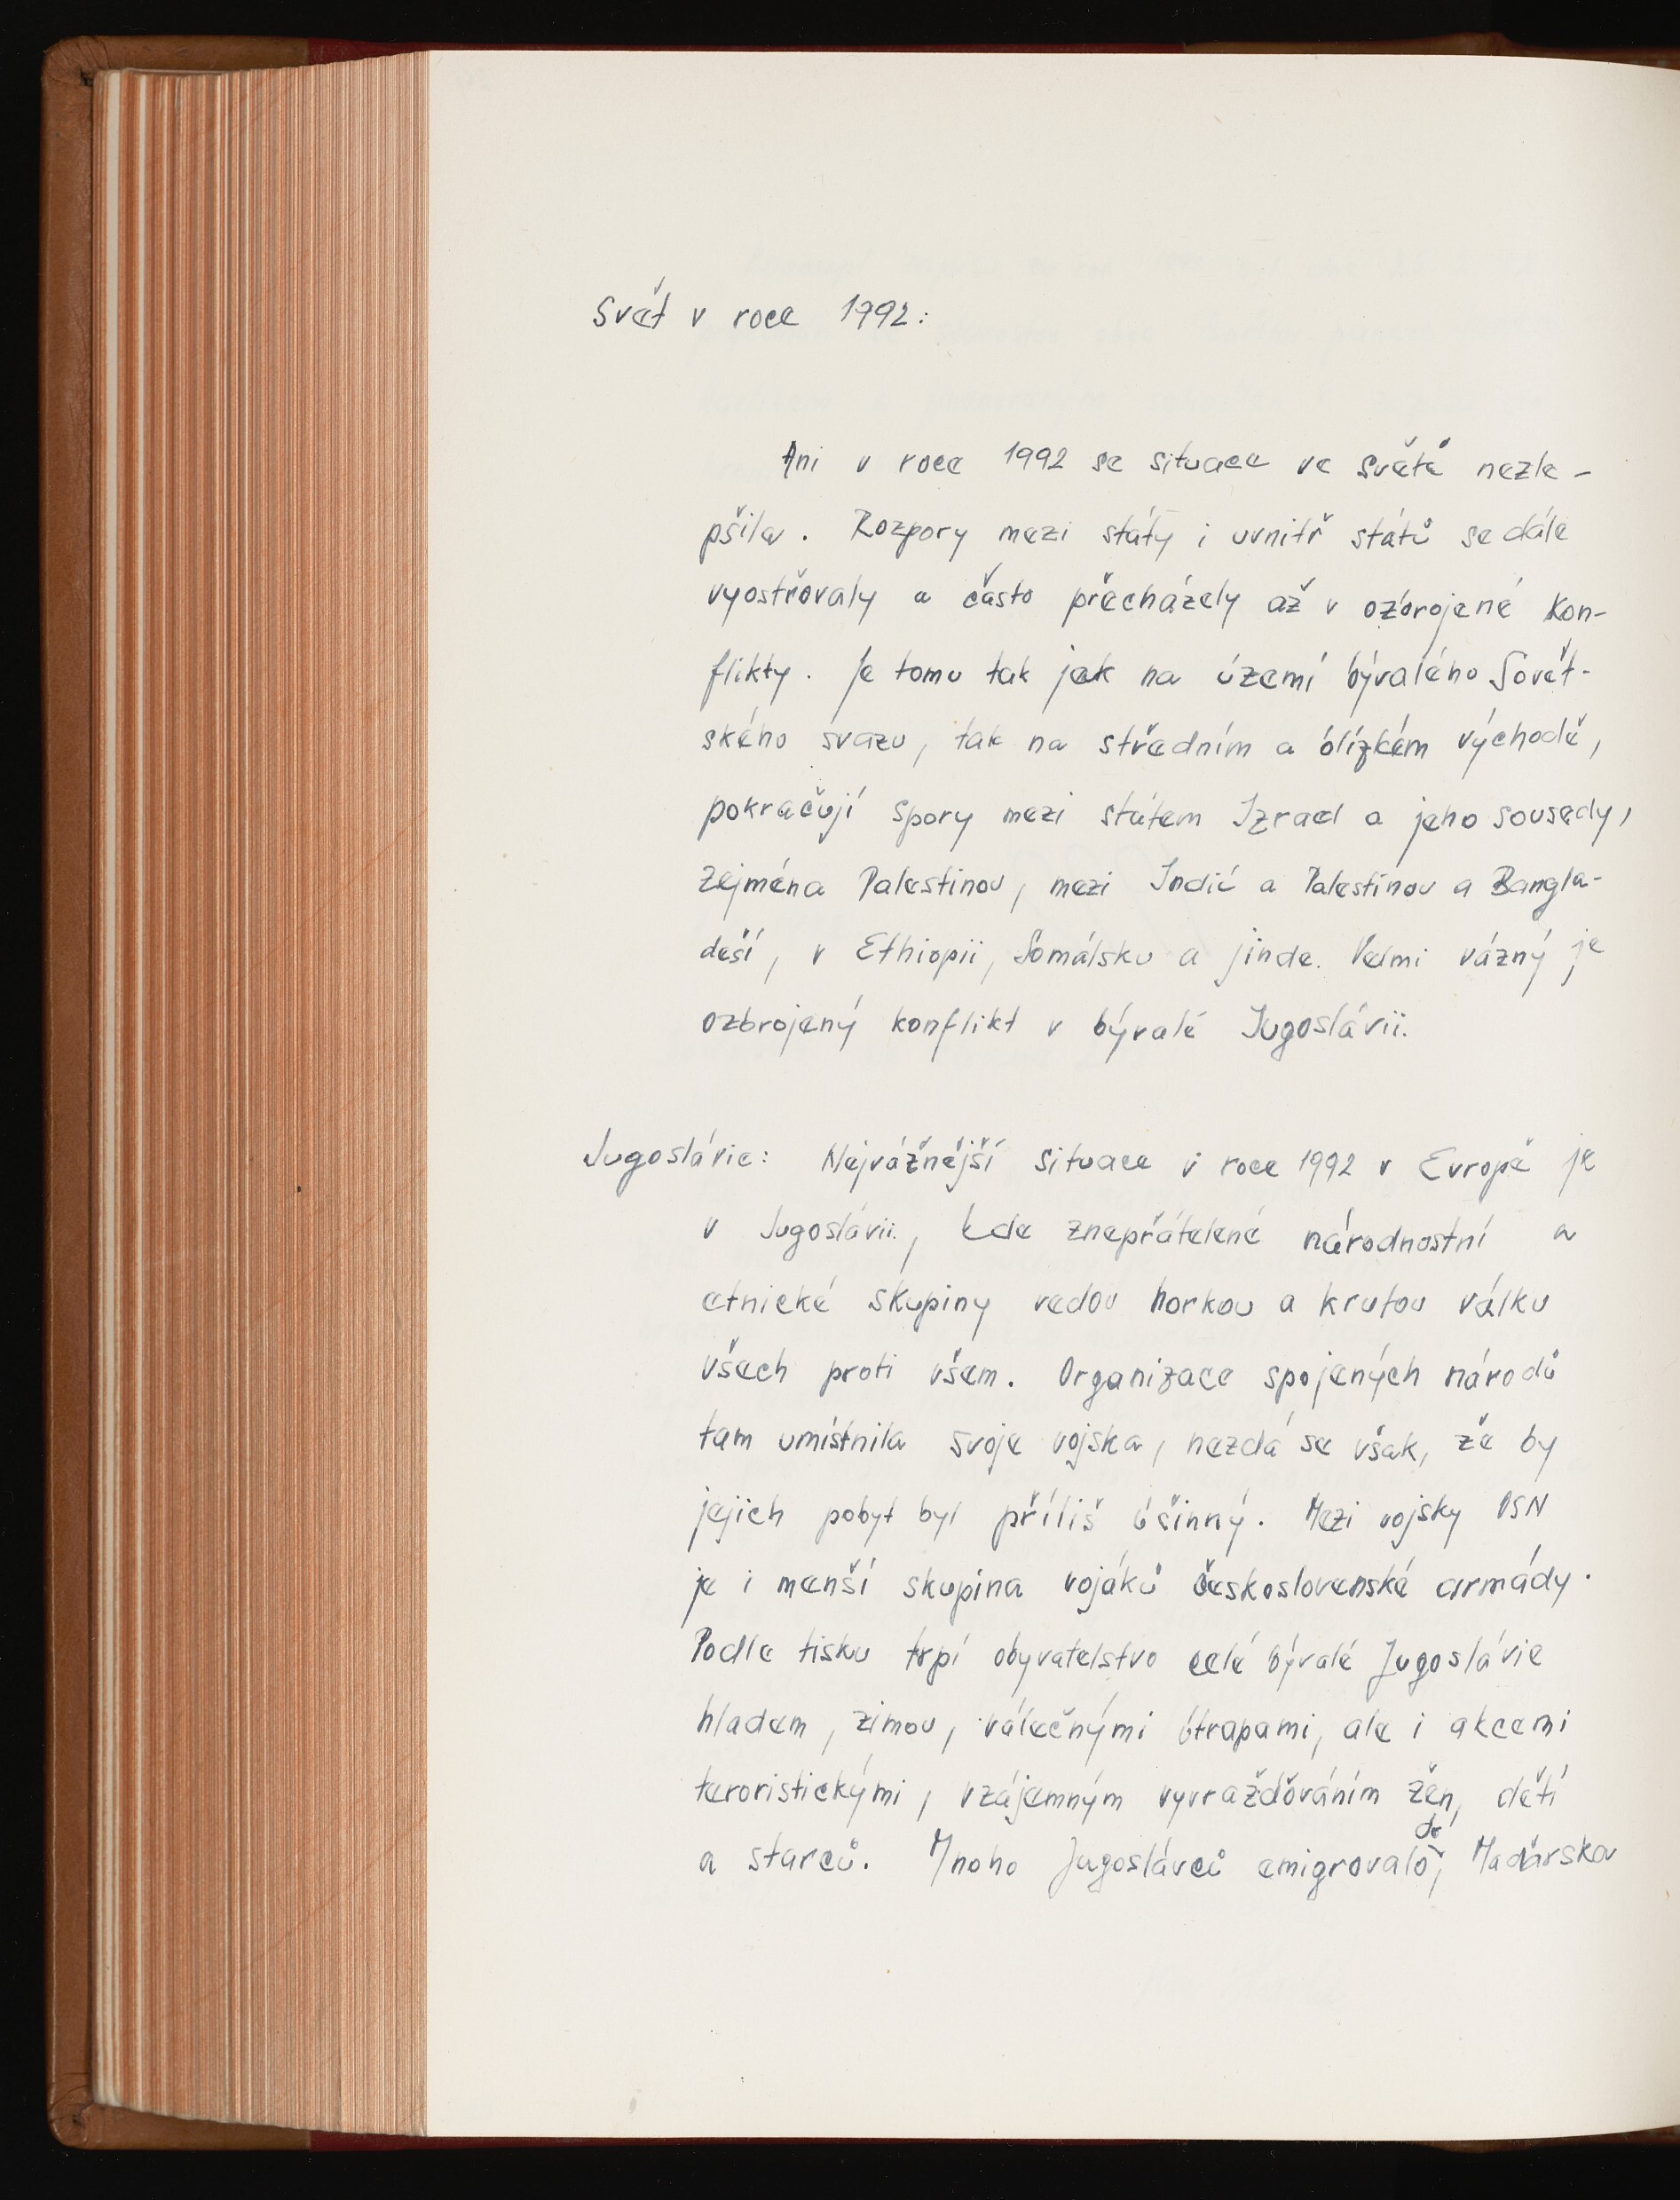 Svět v roce 1992:
Ani v roce 1992 se situace ve světě nezle-
pšila. Rozpory mezi státy i uvnitř států se dále
vyostřovaly a často přecházely až v ozbrojené kon-
flikty. Je tomu tak jak na území bývalého Sovět-
ského svazu, tak na středním a blízkém východě,
pokračují spory mezi státem Izrael a jeho sousedy,
zejména Palestinou, mezi Indií a Palestinou a Bangla-
deší, v Ethiopii, Somálsku a jinde. Velmi vázný je
ozbrojený konflikt v bývalé Jugoslávii.
Jugoslávie: Nejvážnější situace v roce 1992 v Evropě je
v Jugoslávii, kde znepřátelené národnostní a
etnické skupiny vedou horkou a krutou válku
všech proti všem. Organizace spojených národů
tam umístnila svoje vojska, nezdá se však, že by
jejich pobyt byl příliš účinný. Mezi vojsky OSN
je i menší skupina vojáků československé armády.
Podle tisku trpí obyvatelstvo celé bývalé Jugoslávie
hladem, zimou, válečnými útrapami, ale i akcemi
teroristickými, vzájemným vyvražďováním žen, dětí
a starců. Mnoho Jugoslávců emigrovalo do Maďarska